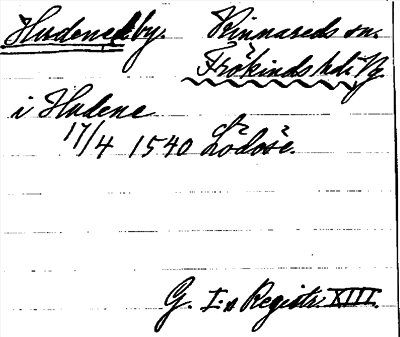 Hudene by. Kinnareds sn.
Frökinds hd. Vg.
i Hudene
17/4 1540 Lödöse.
G. I:s Registr. XIII.